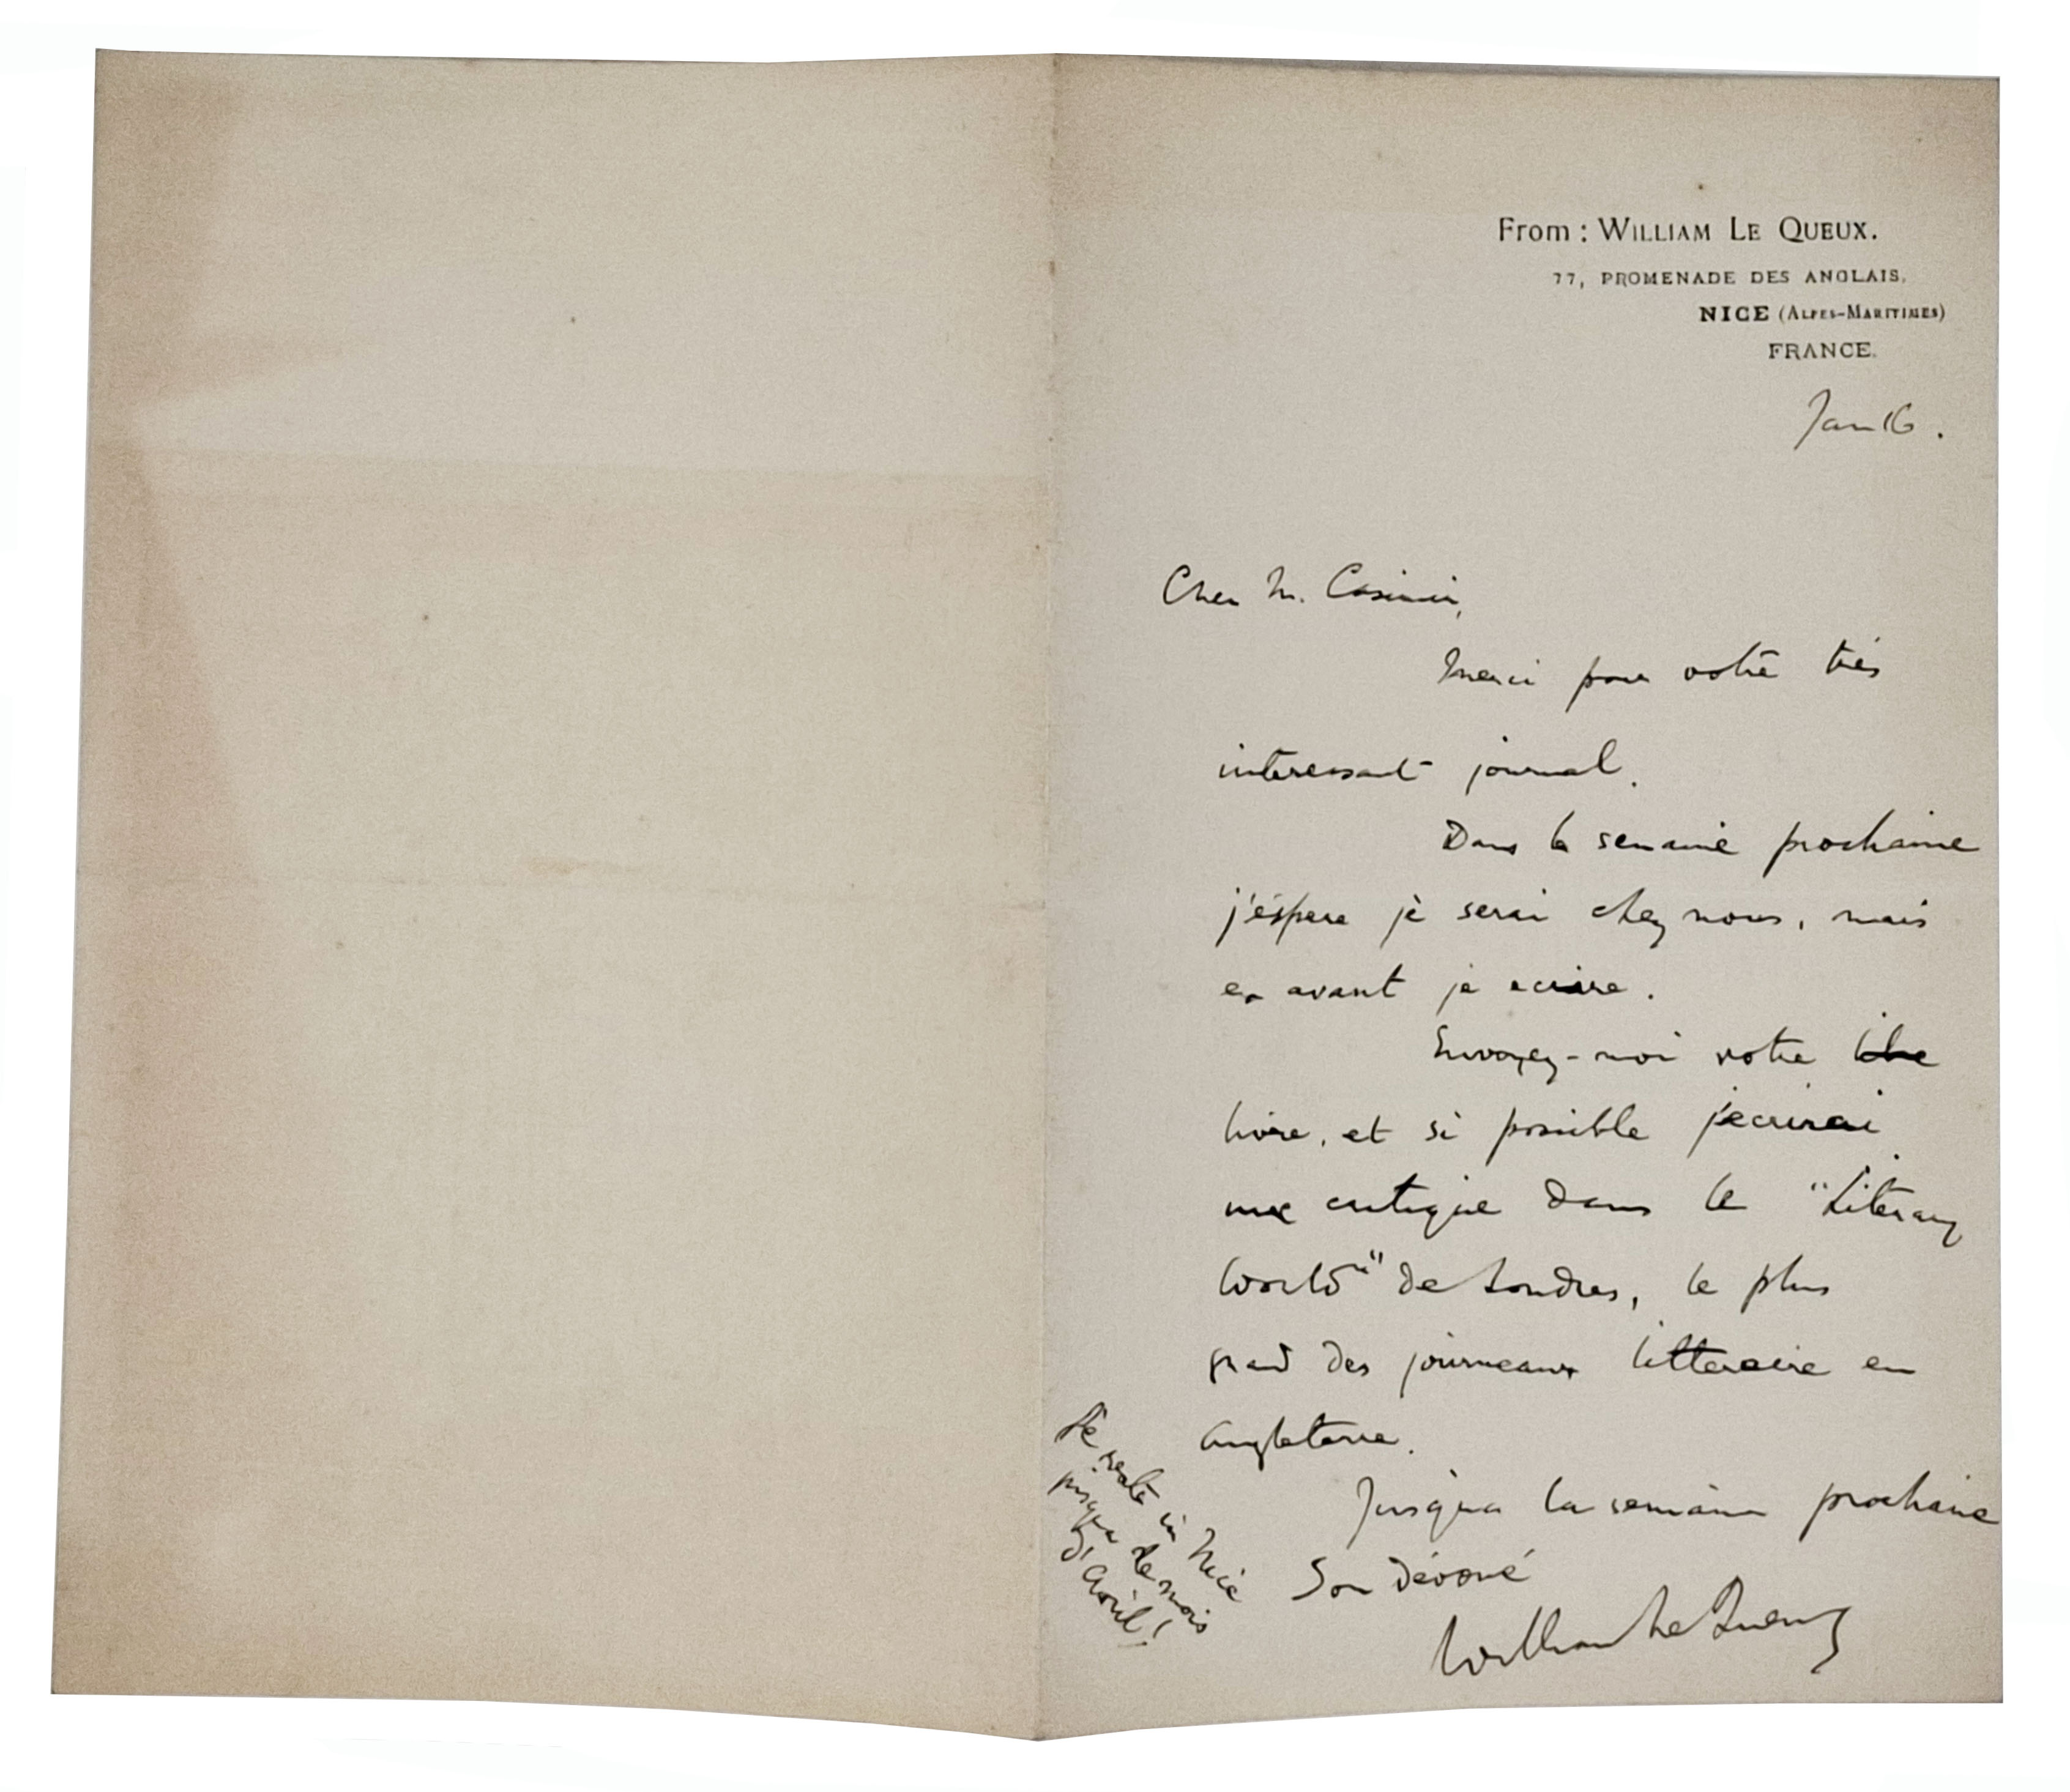 From: WILLIAM LE QUEUX.
77, PROMENADE DES ANGLAIS,
NICE (ALPES-MARITIMES)
FRANCE.
Jan 16.
Cher M. Casimir,
Merci pour votre trés
interessant journal.
Dans la semaine prochaine
j'éspere je serai chez nous, mais
en avant je ecrire.
Envoyez-moi votre
livre, et si possible j'ecrirai
une critique dans le "Literary
World" de Londres, le plus
grand des journeaux litteraire en
Angleterre.
Jusqua la semaine prochaine
Son dévoué
William Le Queux
Je reste in Nice
jusqua le mois
d'Avril!